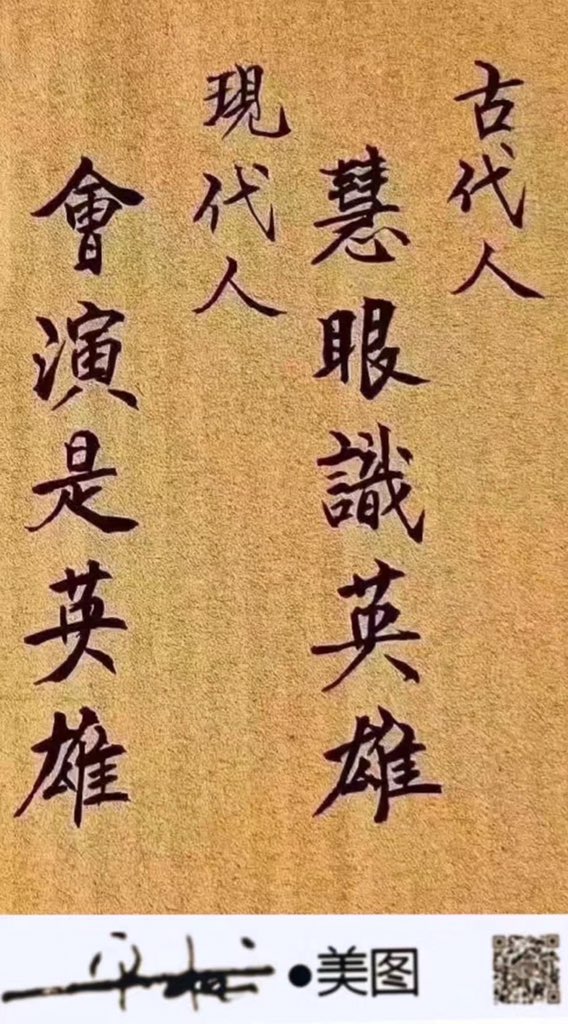 古代人
慧眼識英雄
現代人
會演是英雄
●美图